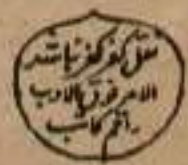 نقل کفر کفر نباشد
الامر فوق الادب
راقم کاتب